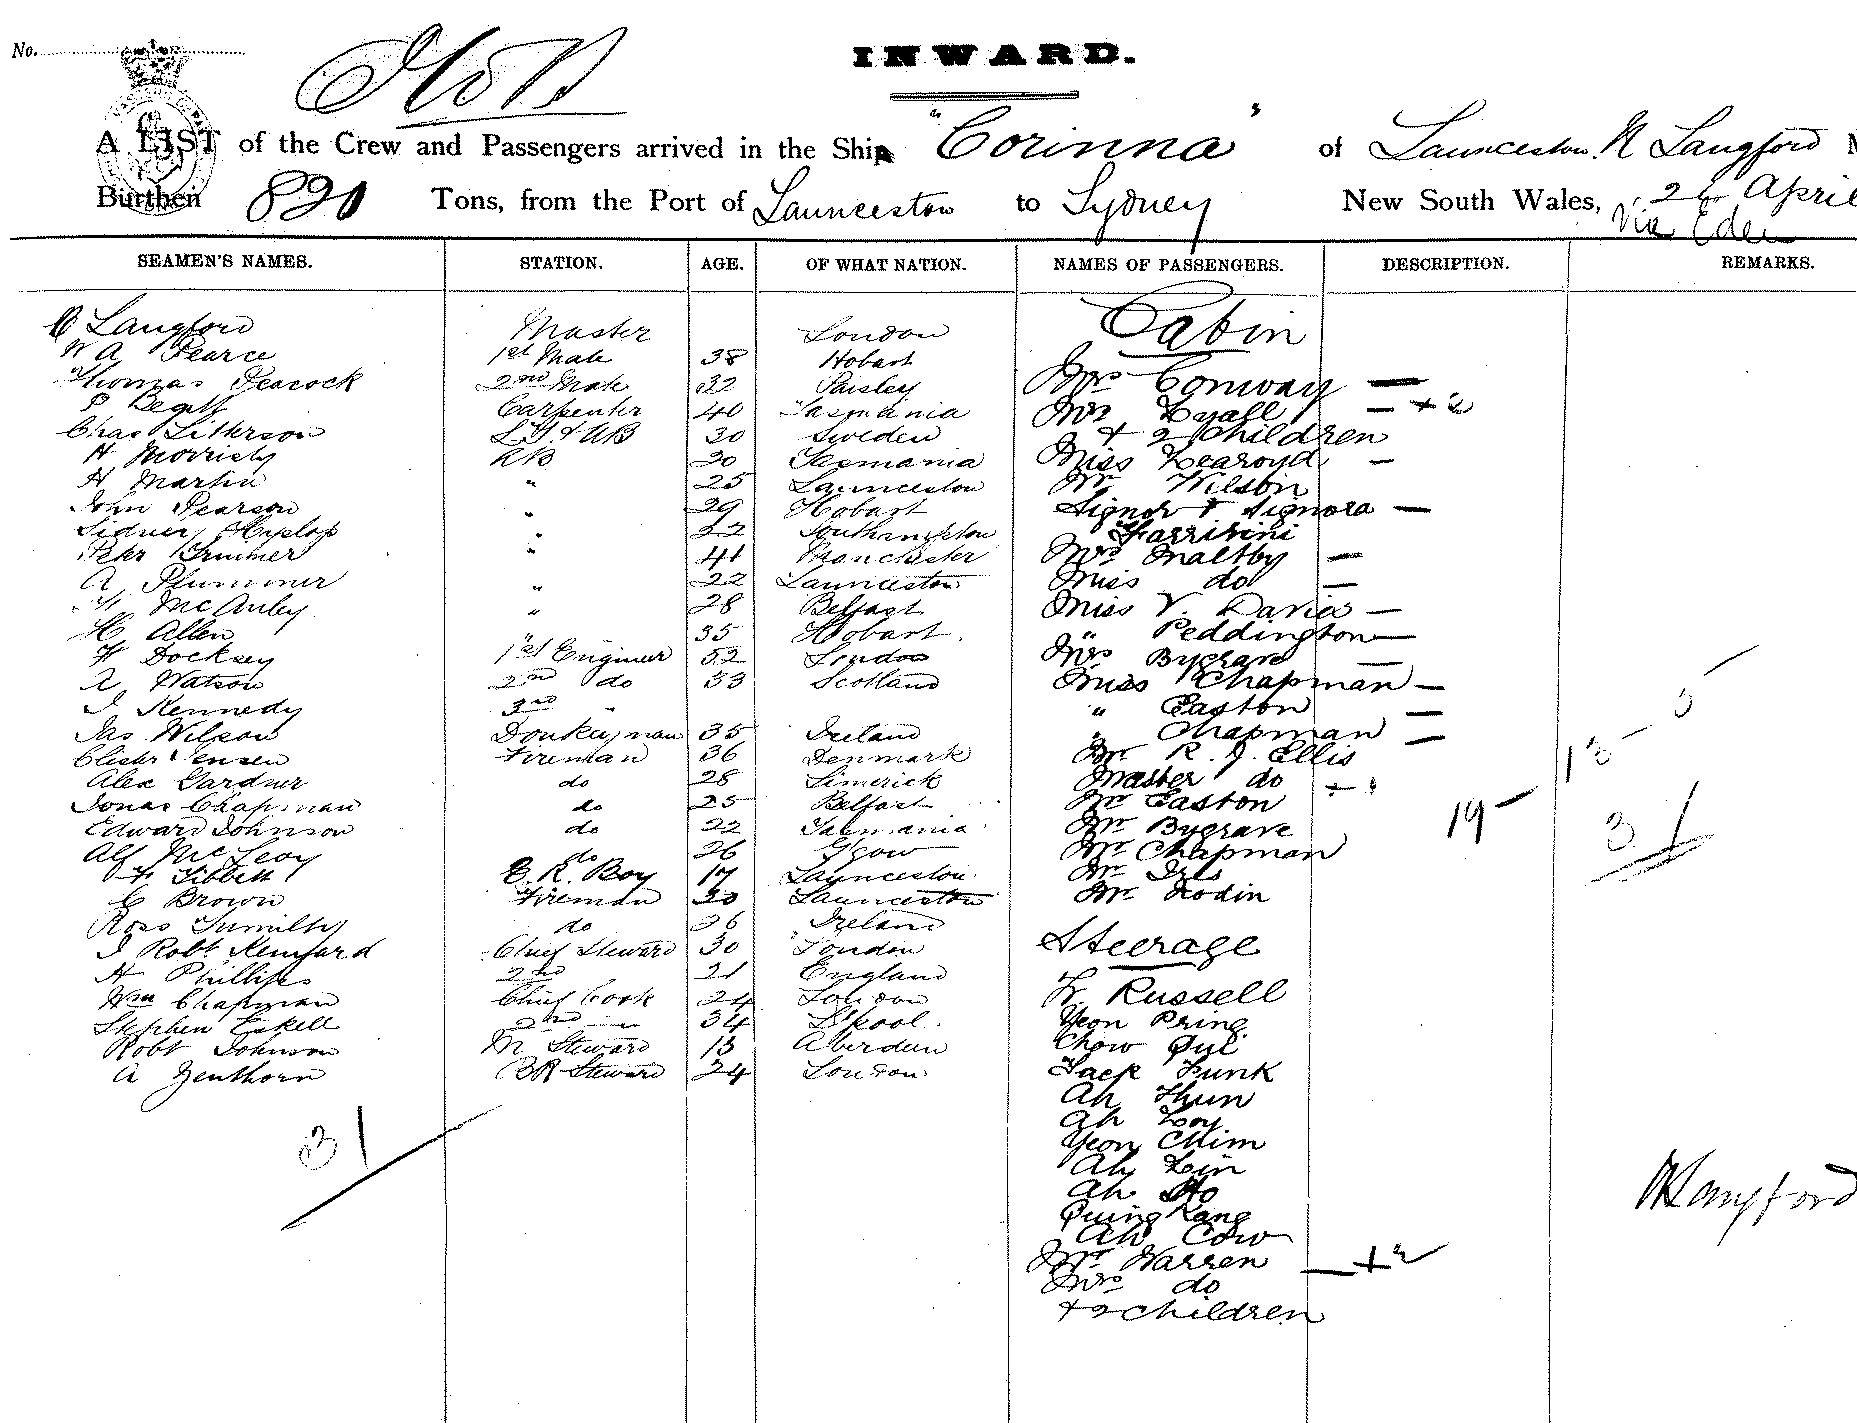 No.
INWARD.
A LIST of the Crew and Passengers arrived in the Ship "Corinna" of Launceston. Langford
Burthen 820 Tons, from the Port of Launceston to Sydney New South Wales, April
Via Eden
SEAMEN'S NAMES. STATION. AGE. OF WHAT NATION. NAMES OF PASSENGERS. DESCRIPTION. REMARKS.
Langford Master London Cabin
W A Pearce 1st Mate 38 Hobart
Thomas Peacock 2nd Mate 32 Paisley Mrs Conway —
Carpenter 40 Tasmania Mrs Lyall — + 2
Chas 30 Sweden + 2 Children
H Morrisby AB 30 Tasmania Miss Learoyd —
H Martin " 25 Launceston Mr Wilson
John Pearson " 29 Hobart Signor & Signora —
Sidney Hyslop " 22 Southampton
Peter " 41 Manchester Mrs Maltby —
A Plummer " 22 Launceston Miss do —
McAuley " 28 Belfast Miss V. Davis —
H Allen 35 Hobart. " Peddington —
H Docksey 1st Engineer 52 London Mrs Bygrave —
A Watson 2nd do 33 Scotland Miss Chapman —
J Kennedy 3rd " " Easton —
Jas Wilson Donkeyman 35 Ireland " Chapman —
Jensen Fireman 36 Denmark Mr R. J. Ellis
Alex Gardner do 28 Limerick Master do
Jonas Chapman do 25 Belfast Mr Easton
Edward Johnson do 22 Tasmania Mr Bygrave 19 31
Alf McLeoy do 26 Ggow Mr Chapman
Tibbett E. R. Boy 17 Launceston Mr
C Brown Fireman 30 Launceston Mr Rodin
Ross do 26 Ireland
J Robt Chief Steward 30 London Steerage
H Phillips 2nd 21 England
Wm Chapman Chief Cook 24 London Russell
Stephen Eskell 2nd 34 L'pool. Yeon Pring
Robt Johnson M Steward 18 Aberdeen Chow
A Zenthorn BR Steward 24 London Jack Funk
Ah Thun
Ah Loy
Yeon Chim
Ah Lin
Ah Ho
Ah Cow
Mr Warren — + 2
Mrs do
+ 2 children
31
Langford